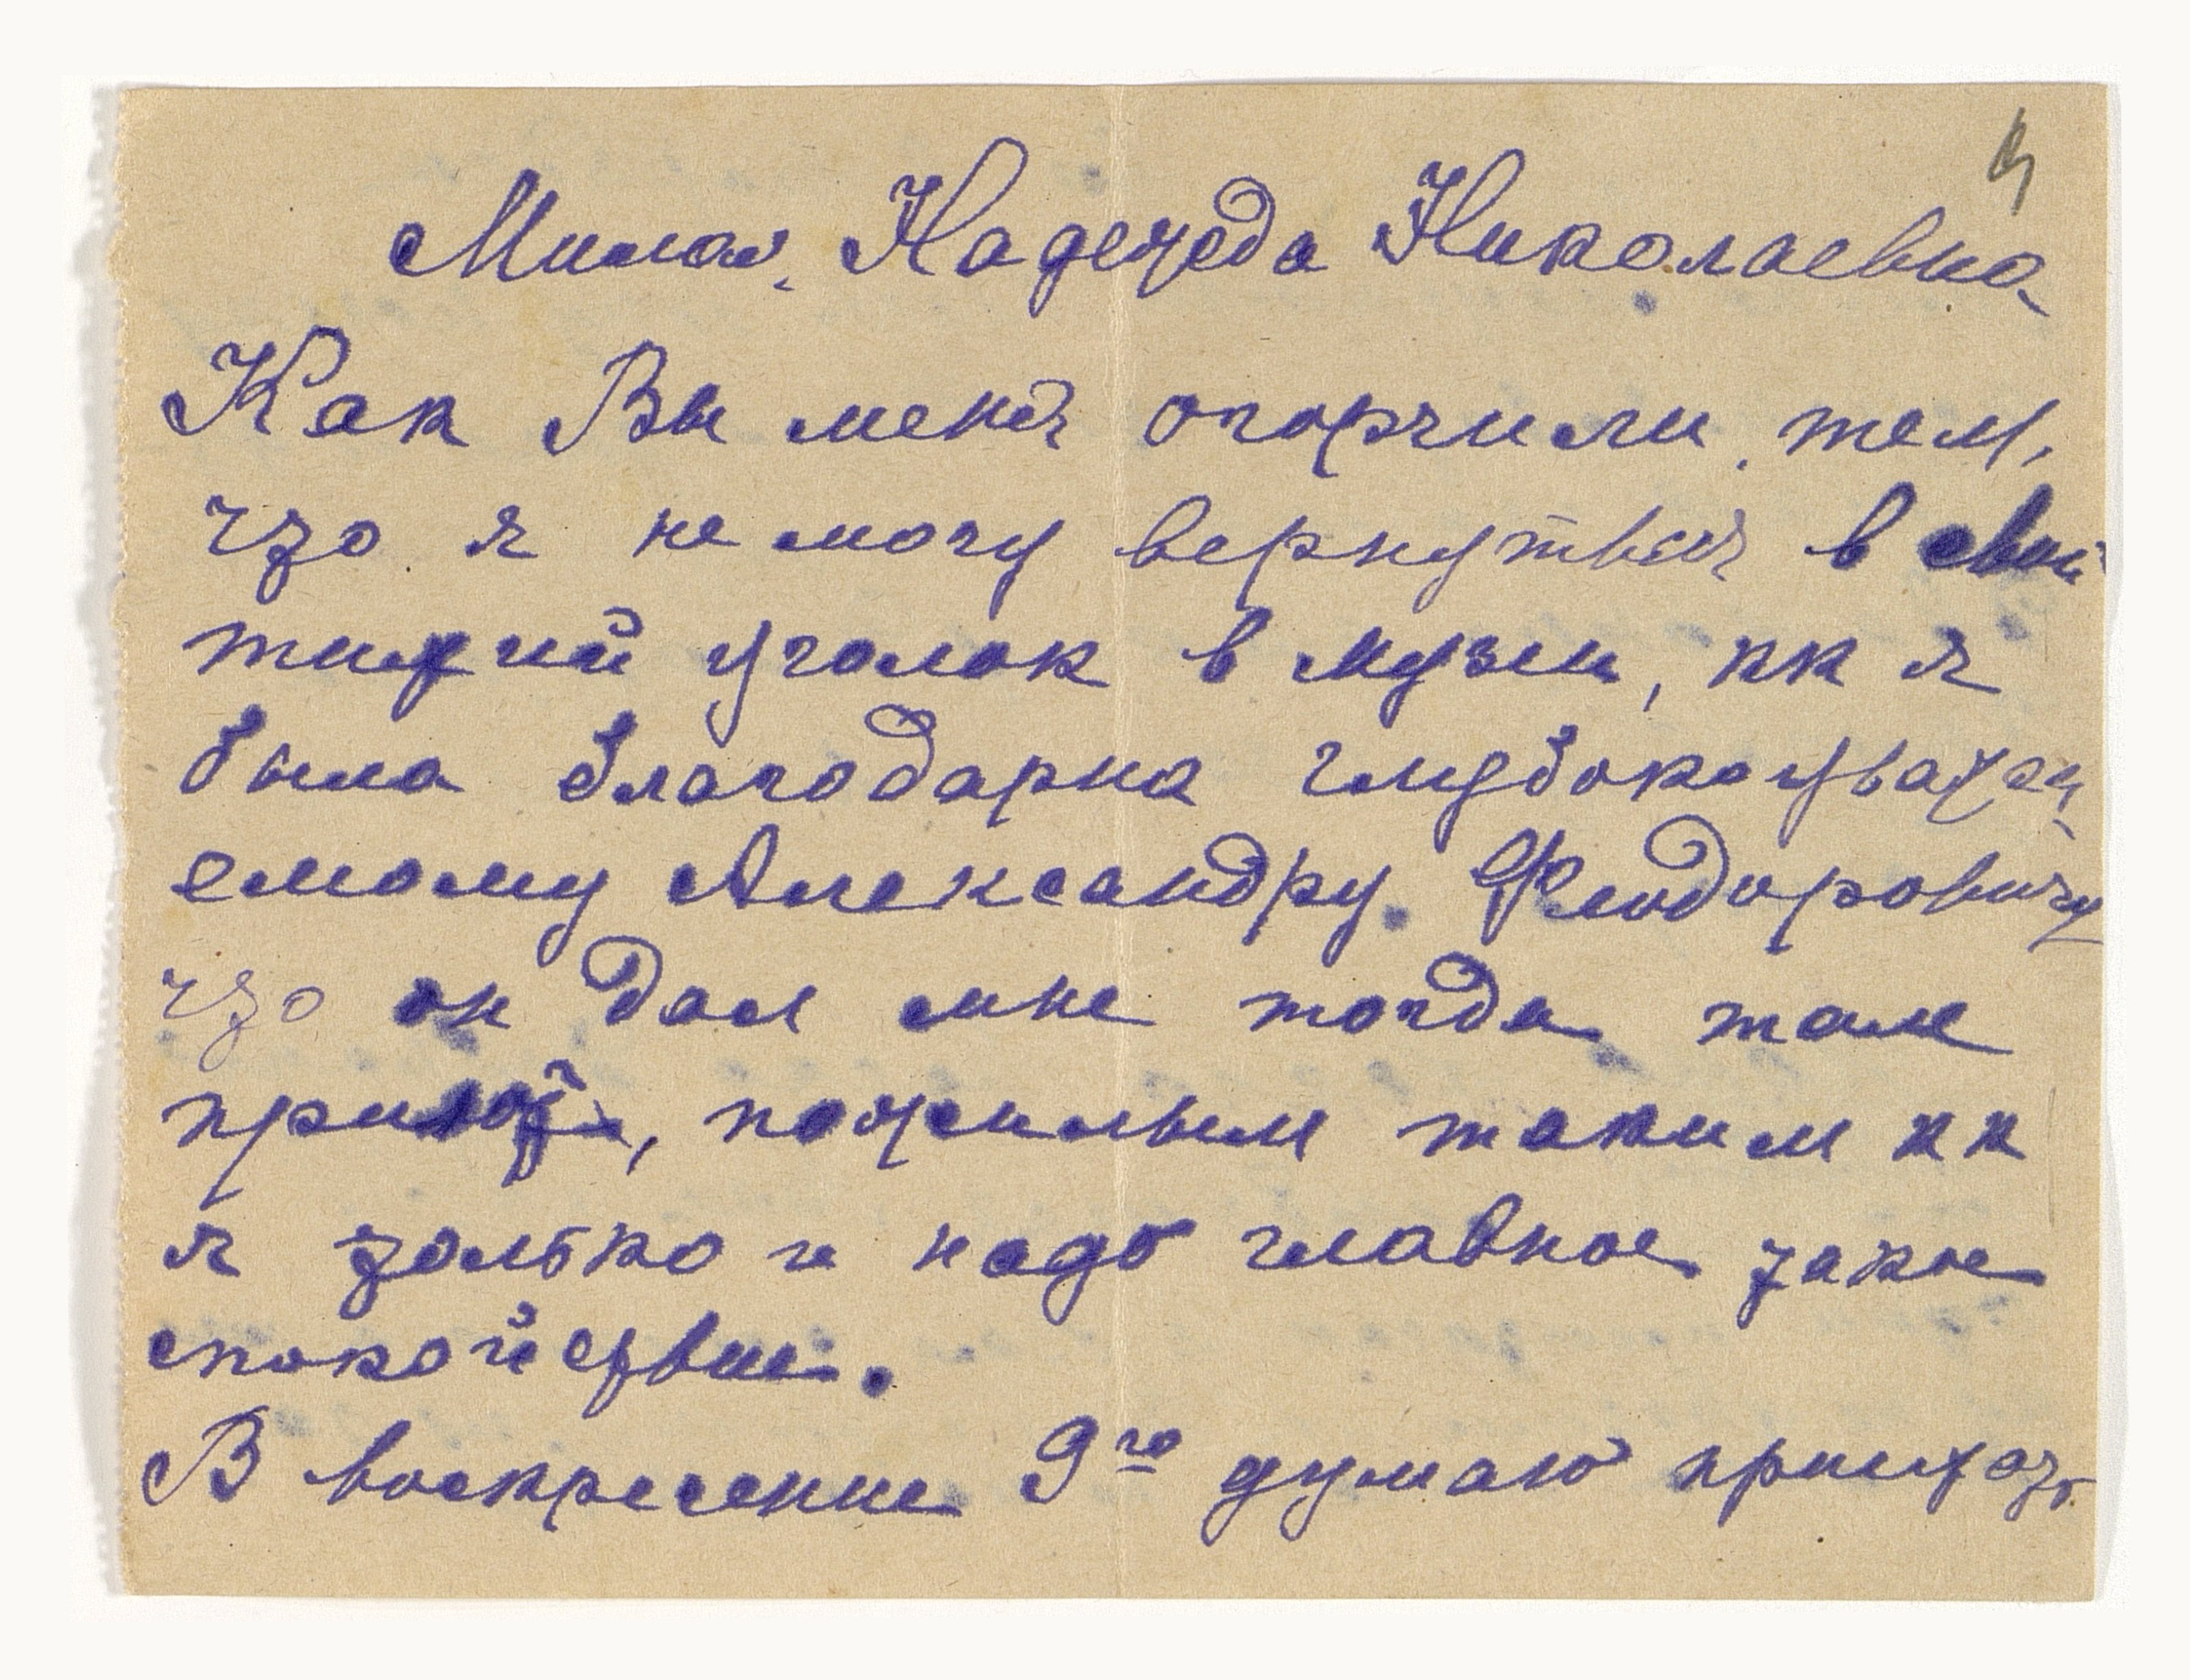 Милая, Надежда Николаевна
Как Вы меня огорчили, тем,
что я не могу вернуться в свой
тихий уголок в музеи, кк я
была благодарна глубокоуважа
емому Александру Феодоровичу
что он дал мне тогда там
приют, пожилым таким кк
я только и надо главное такое
спокойствие.
В воскресение 9го думаю приехать